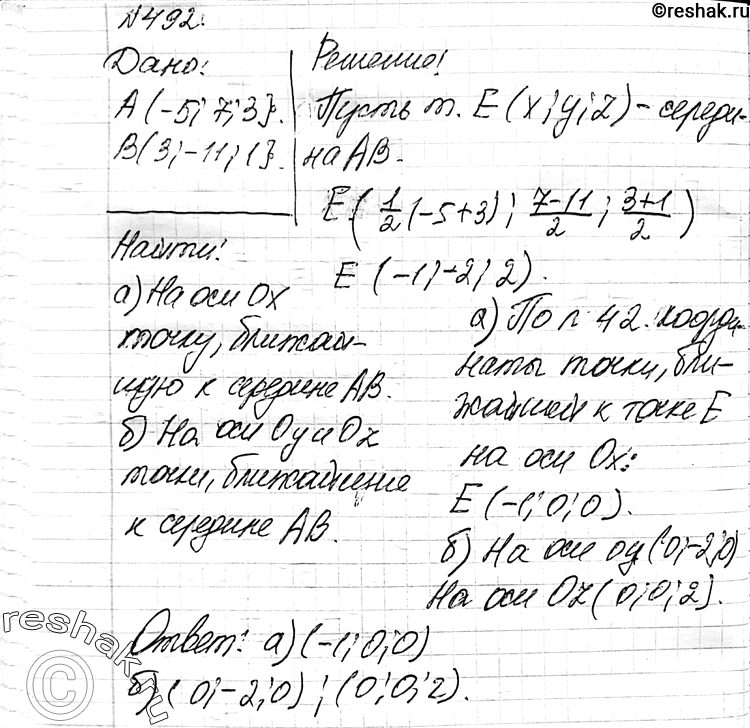 ©reshak.ru
№492.
Дано:
А(-5; 7; 3}.
В(3; -11; 1}.
Найти:
а) На оси Ox
точку, ближай-
шую к середине АВ.
б) На оси Oy и Oz
точки, ближайшие
к середине АВ.
Решение:
Пусть т. Е(x; y; z) - середи-
на АВ.
Е(1/2(-5+3); (7-11)/2; (3+1)/2)
Е (-1; -2; 2).
а) По п 42. коорди-
наты точки, бли-
жайшей к точке Е
на оси Ox:
Е (-1; 0; 0).
б) На оси oy (0; -2; 0)
На оси Oz (0; 0; 2).
Ответ: а) (-1; 0; 0)
б) (0; -2; 0); (0; 0; 2).
©reshak.ru